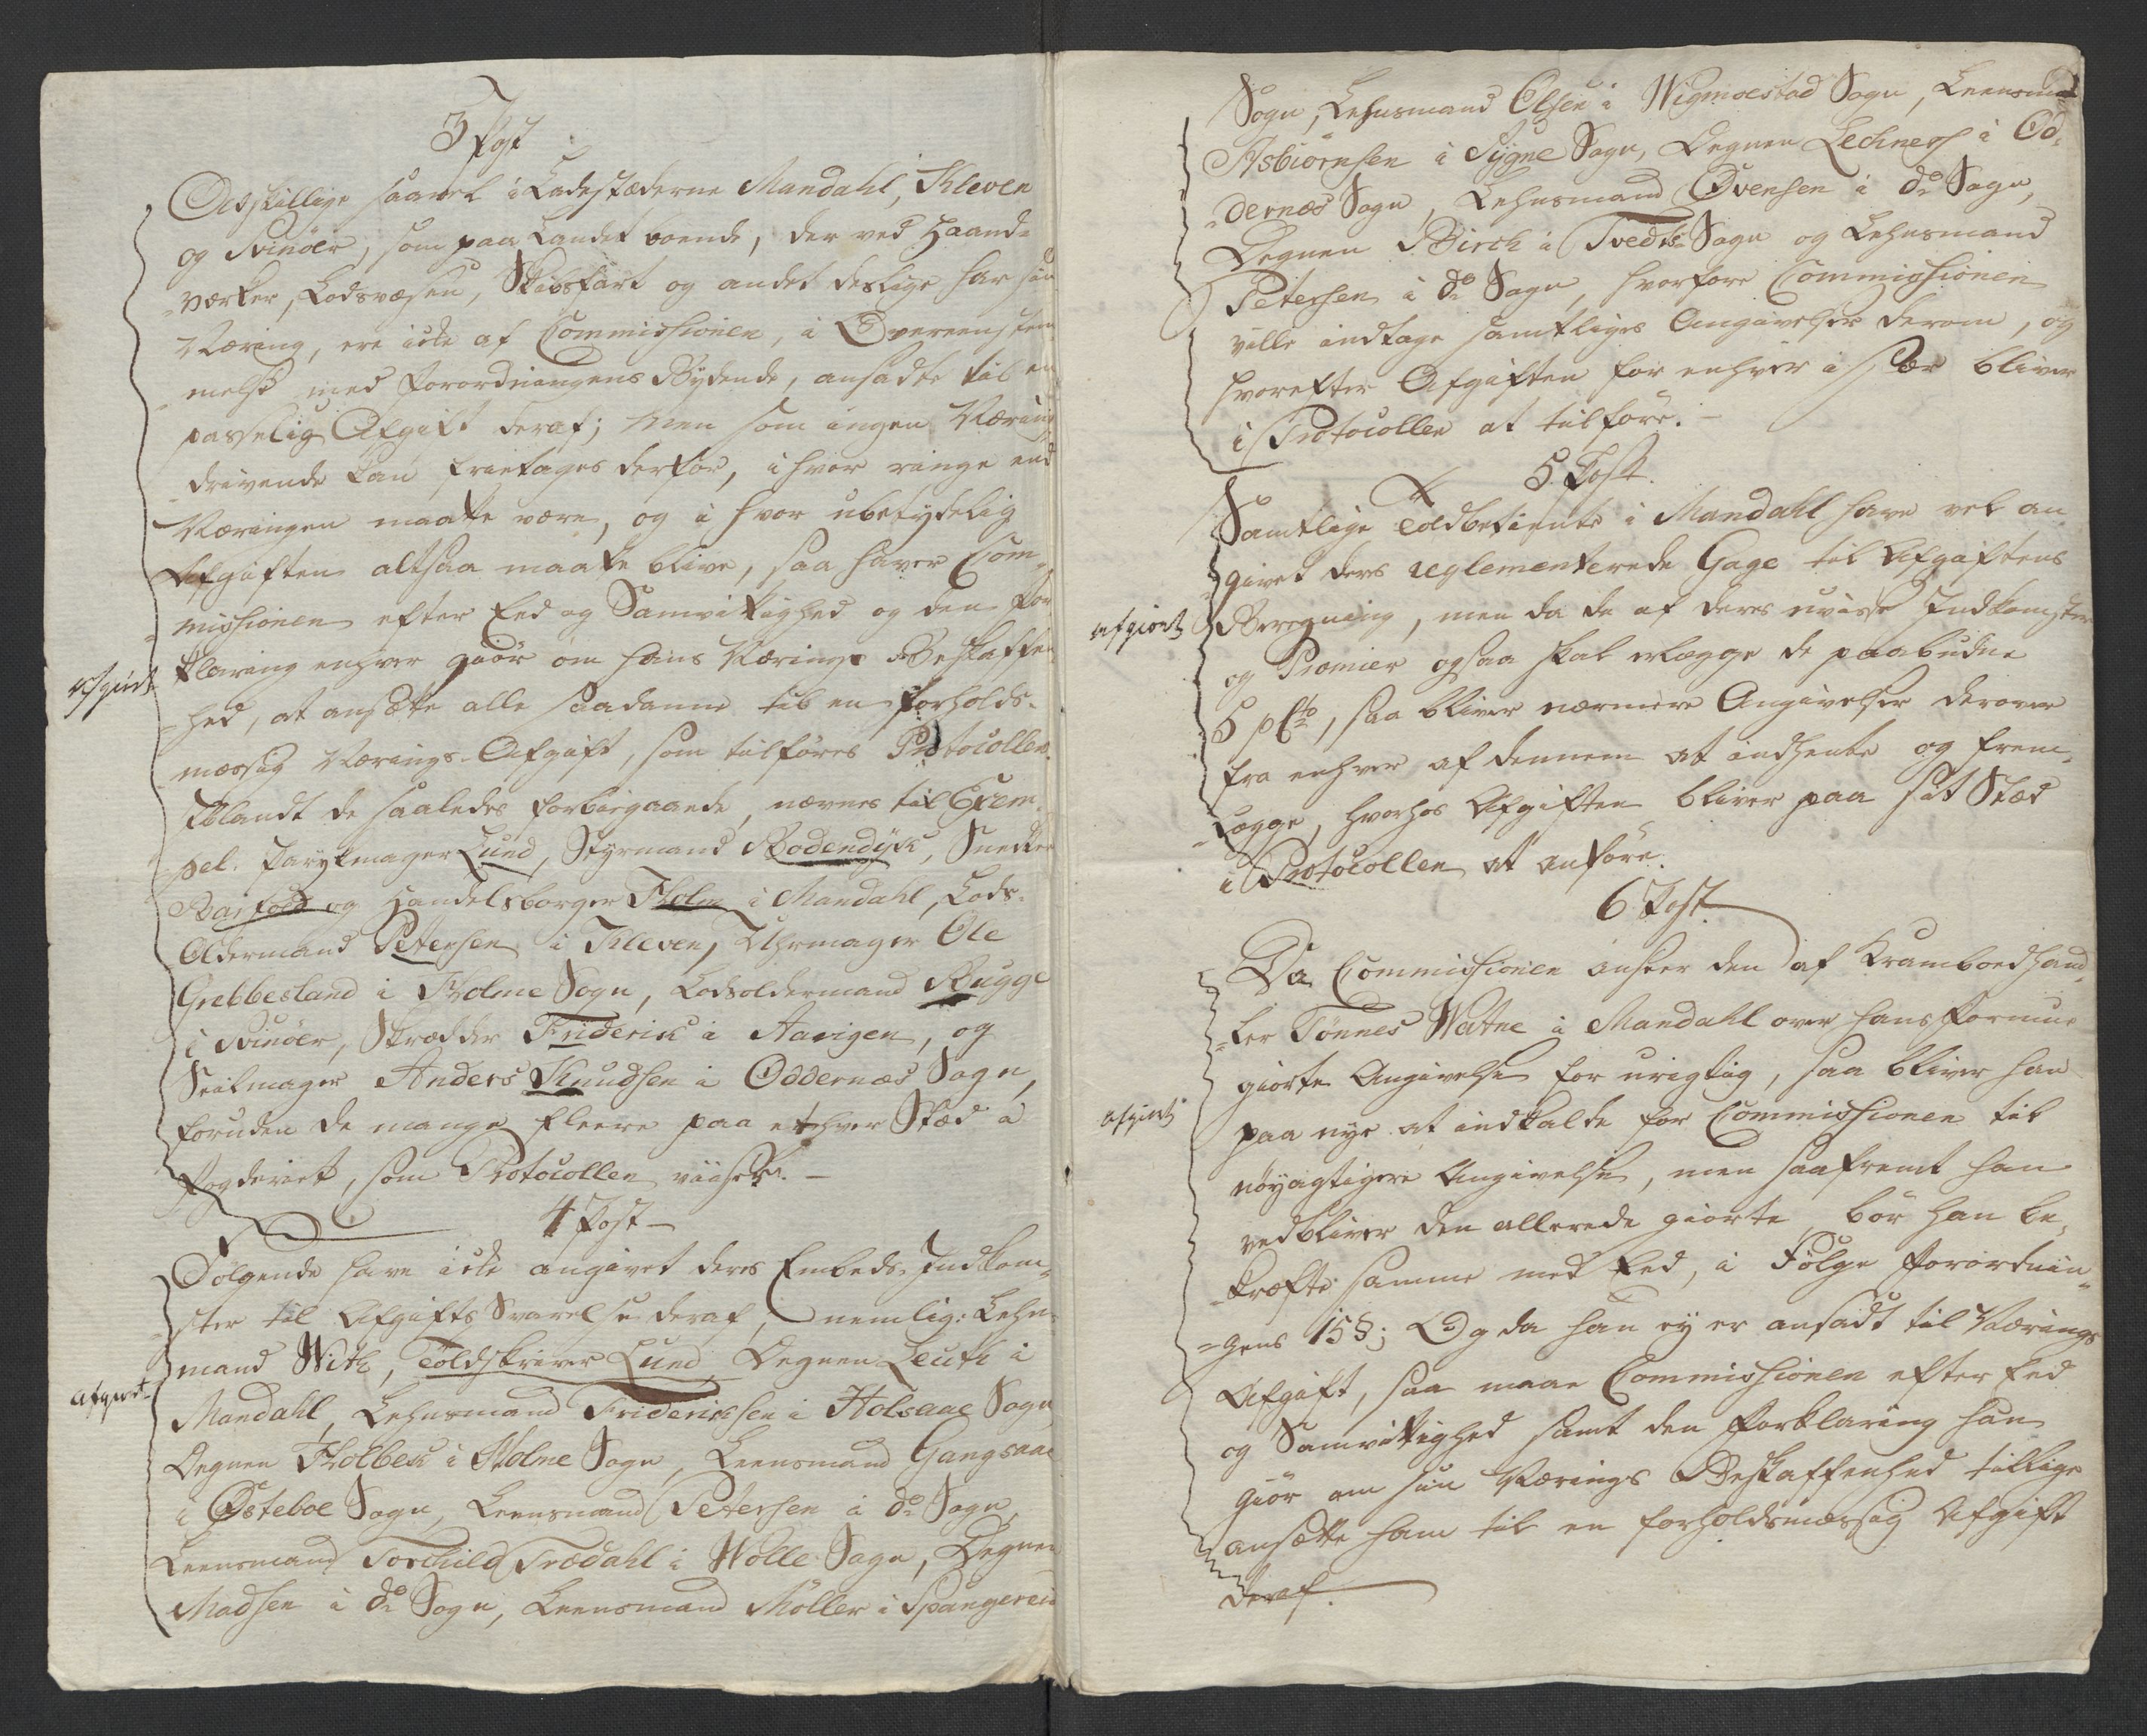 3 Post
Adskillige saavel i Ladestæderne Mandahl, Kleven
og Svinöer, som paa Landet boende, der ved Haand-
værker, Lodsvæsen, Skibsfart og andet deslige har sin
Næring, ere icke af Commissionen, i Overeenstem
melse med Forordningens Bydende, ansadte til en
passelig Afgift deraf; Men som ingen Næring
drivende kan fritages derfor, i hvor ringe end
Næringen maatte være, og i hvor ubetydelig
Afgiften altsaa maatte blive, saa haver Com-
missionen efter Eed og Samvittighed og den For
klaring enhver giör om hans Nærings Beskaffen
hed, at ansætte alle saadanne til en forholds-
mæssig Nærings-Afgift, som tilföres Protocollen.
Iblandt de saaledes forbiegaaende, nævnes til Exem-
pel: Parykmager Lund, Styrmand Bodendyk, Snedker
Barfoed og Handelsborger Holm i Mandahl, Lods-
Oldermand Petersen i Kleven, Uhrmager Ole
Grebbestand i Holme Sogn, Lodsoldermand Bugge
i Svinöer, Skrædder Friderik i Aavigen, og
Seilmager Anders Knudsen i Oddernæs Sogn,
foruden de mange fleere paa ethver Stæd i
Fogderiet, som Protocollen viiser. –
afgiort
4 Post –
Fölgende have icke angivet deres Embeds-Indkom-
ster til Afgifts Svarelse deraf, nemlig: Lehns
mand With, Toldskriver Lund, Degnen Leuth i
Mandahl, Lehnsmand Friderichsen i Holsaae Sogn
Degnen Holbek i Holme Sogn, Leensmand Gangsaae
i Østeboe Sogn, Leensmand Petersen i do Sogn,
Leensmand Torchild Trædahl i Wolle Sogn, Degnen
Madsen i do Sogn, Leensmand Möller i Spangereid
afgiort
Sogn, Lehnsmand Olsen i Wigmoestad Sogn, Leensmd
Asbiörnsen i Sygne Sogn, Degnen Lechner i Od-
dernæs Sogn, Lehnsmand Ovensen i do Sogn,
Degnen Birch i Tvedts Sogn og Lehnsmand
Petersen i do Sogn, hvorfore Commissionen
ville indtage samtliges Angivelser derom, og
hvorefter Afgiften for enhver i sær bliver
i Protocollen at tilföre. –
5 Post.
Samtlige Toldbetiente i Mandahl have vel an
givet deres reglementerede Gage til Afgiftens
Beregning, men da de af deres uvisse Indkomster
og Præmier ogsaa skal erlægge de paabudne
5 pCto, saa bliver nærmere Angivelser derover
fra enhver af dennem at indhente og frem-
lægge, hvorhos Afgiften bliver paa sit Stæd
i Protocollen at anföre.
afgiort
6 Post.
Da Commissionen anseer den af Kramboedhand
ler Tönnes Watne i Mandahl over hans Formue
giorte Angivelse for urigtig, saa bliver han
paa nye at indkalde for Commissionen til
nöyagtigere Angivelse, men saafremt han
vedbliver den allerede giorte, bör han be-
kræfte samme med Eed, i Fölge Forordnin-
gens 15 §; Og da han ey er ansadt til Nærings
Afgift, saa maae Commissionen efter Eed
og Samvittighed samt den Forklaring han
giör om sin Nærings Beskaffenhed tillige
ansætte ham til en forholdsmæssig Afgift
deraf.
afgiort